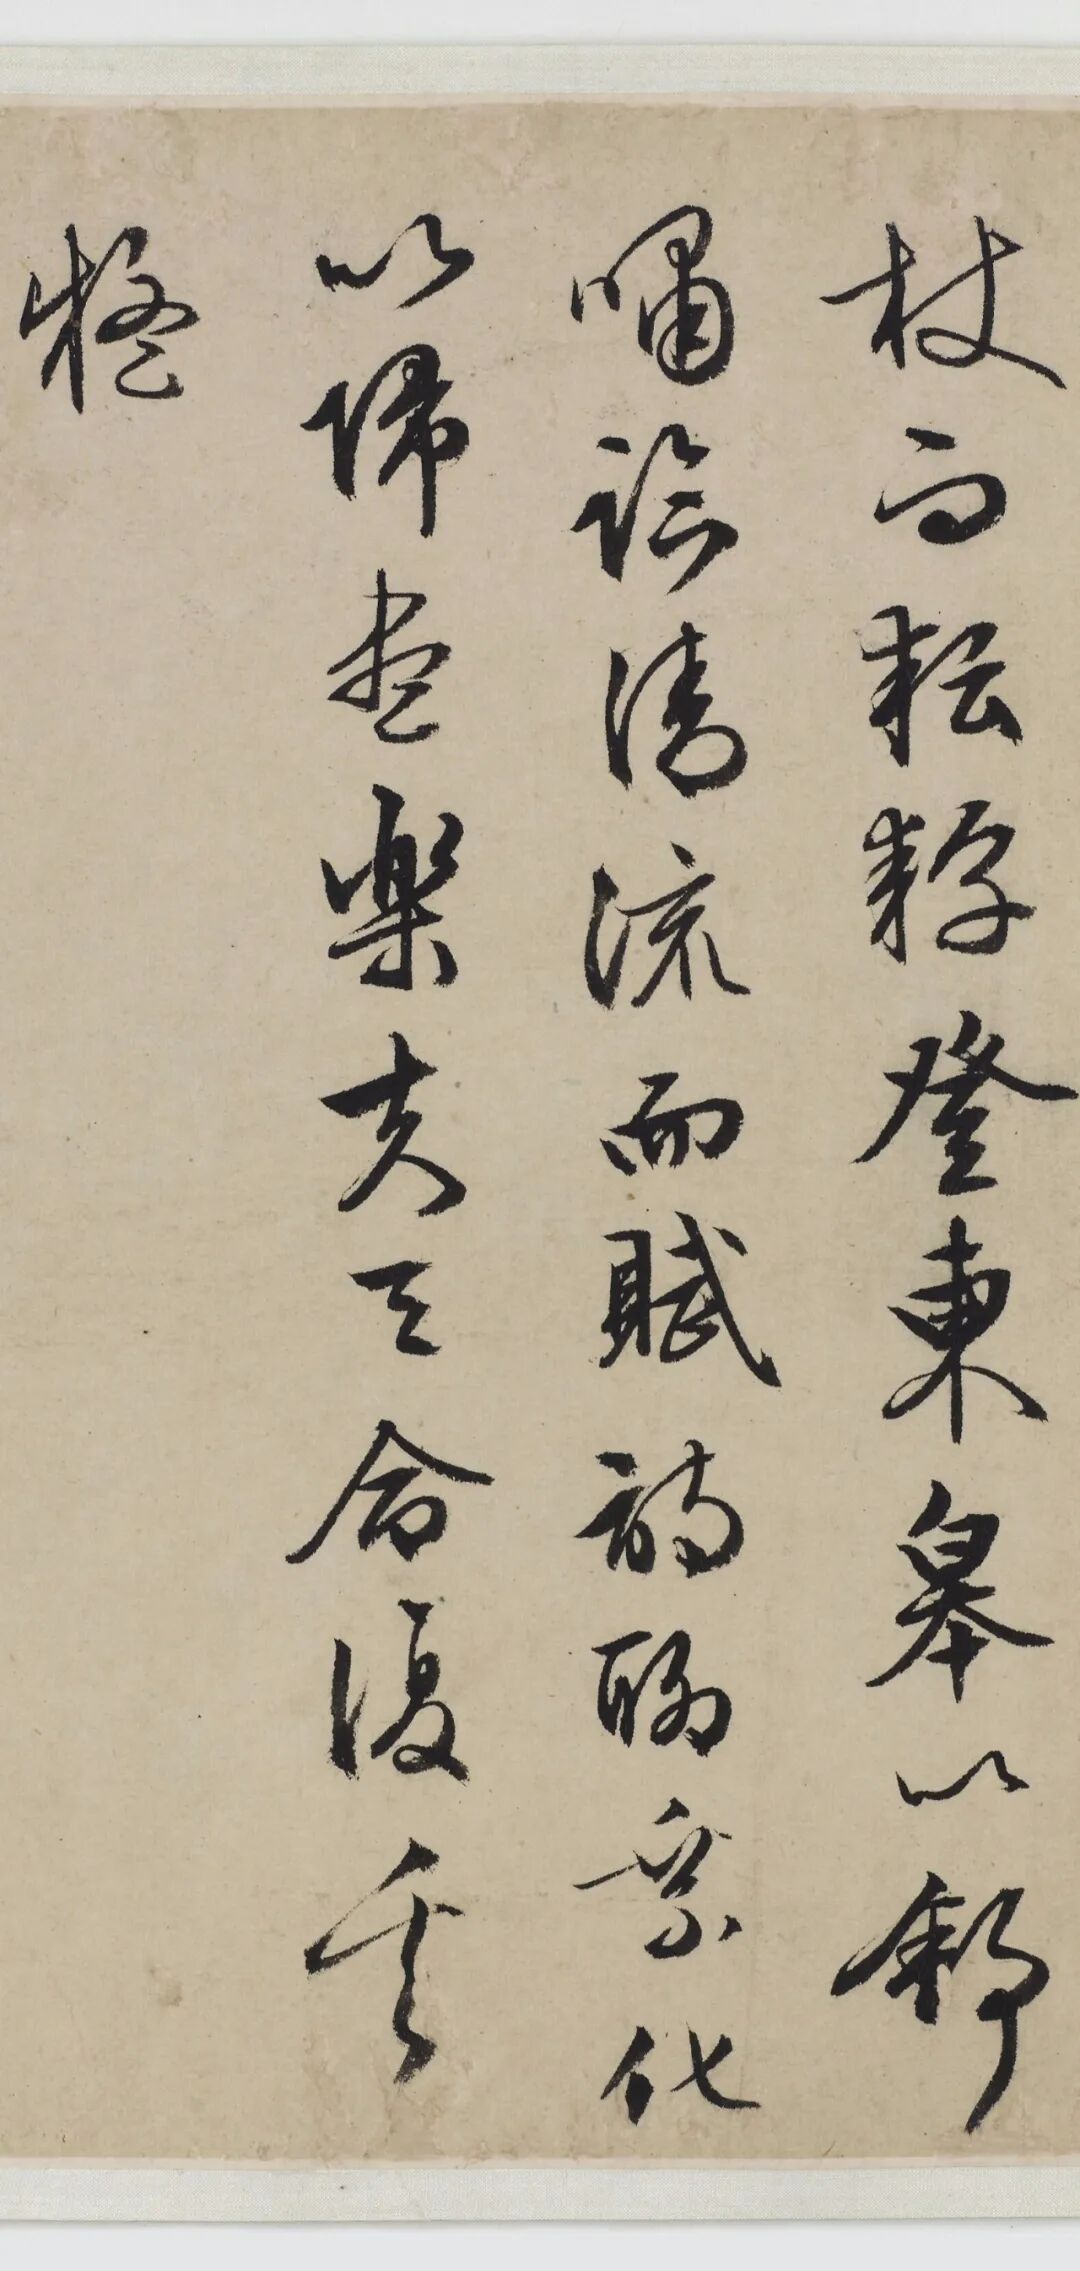 杖而耘耔登東皋以舒
嘯臨清流而賦詩聊乘化
以歸盡樂夫天命復奚
疑